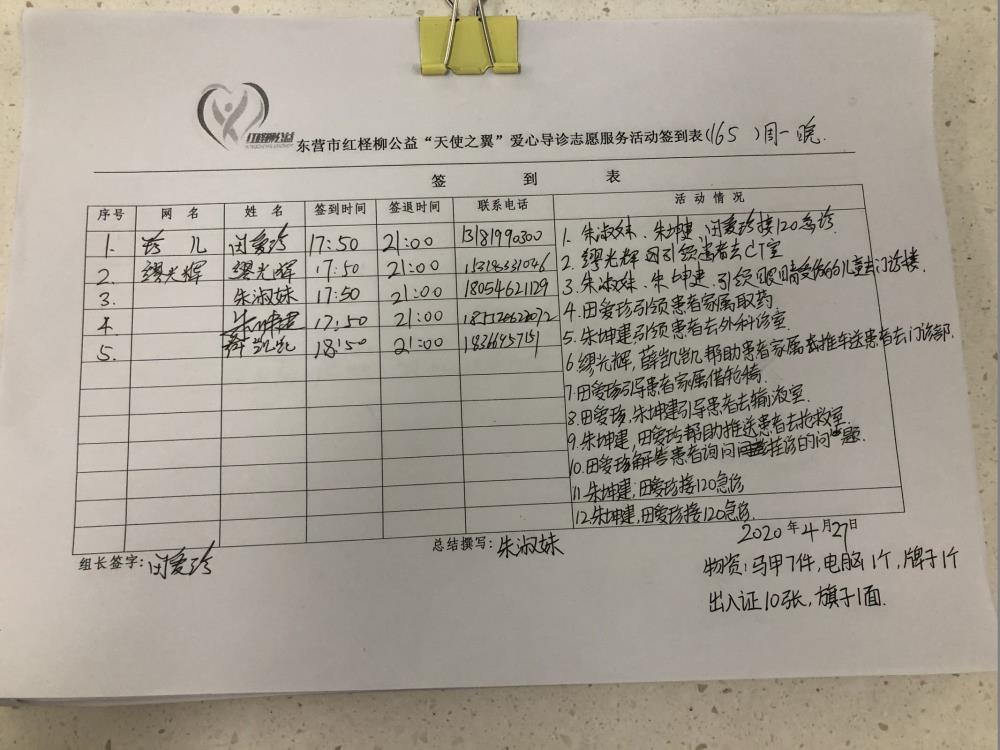 红柽柳公益
东营市红柽柳公益“天使之翼”爱心导诊志愿服务活动签到表(165 )周一晚.
签 到 表
序号 网 名 姓 名 签到时间 签退时间 联系电话 活 动 情 况
1. 芬儿 闵爱珍 17:50 21:00 13181990300
2. 缪光辉 缪光辉 17:50 21:00 15318331046
3. 朱淑妹 17:50 21:00 18054621129
4. 朱坤建 17:50 21:00
5. 薛凯凯 18:50 21:00 18366957151
1. 朱淑妹、朱坤建、闵爱珍接120急诊
2. 缪光辉 引领患者去CT室
3. 朱淑妹、朱坤建.引领眼睛受伤的儿童去门诊楼.
4. 田爱珍引领患者家属取药
5. 朱坤建引领患者去外科诊室.
6 缪光辉,薛凯凯帮助患者家属去推车送患者去门诊部.
7. 田爱珍引导患者家属借轮椅.
8. 田爱珍,朱坤建引导患者去输液室.
9. 朱坤建,田爱珍帮助推送患者去抢救室.
10. 田爱珍解答患者询问 挂诊的问题.
11. 朱坤建,田爱珍接120急诊
12. 朱坤建,田爱珍接120急诊.
组长签字: 闵爱珍 总结撰写: 朱淑妹
2020年4月27日
物资:马甲7件,电脑1个,牌子1个
出入证10张,旗子1面.